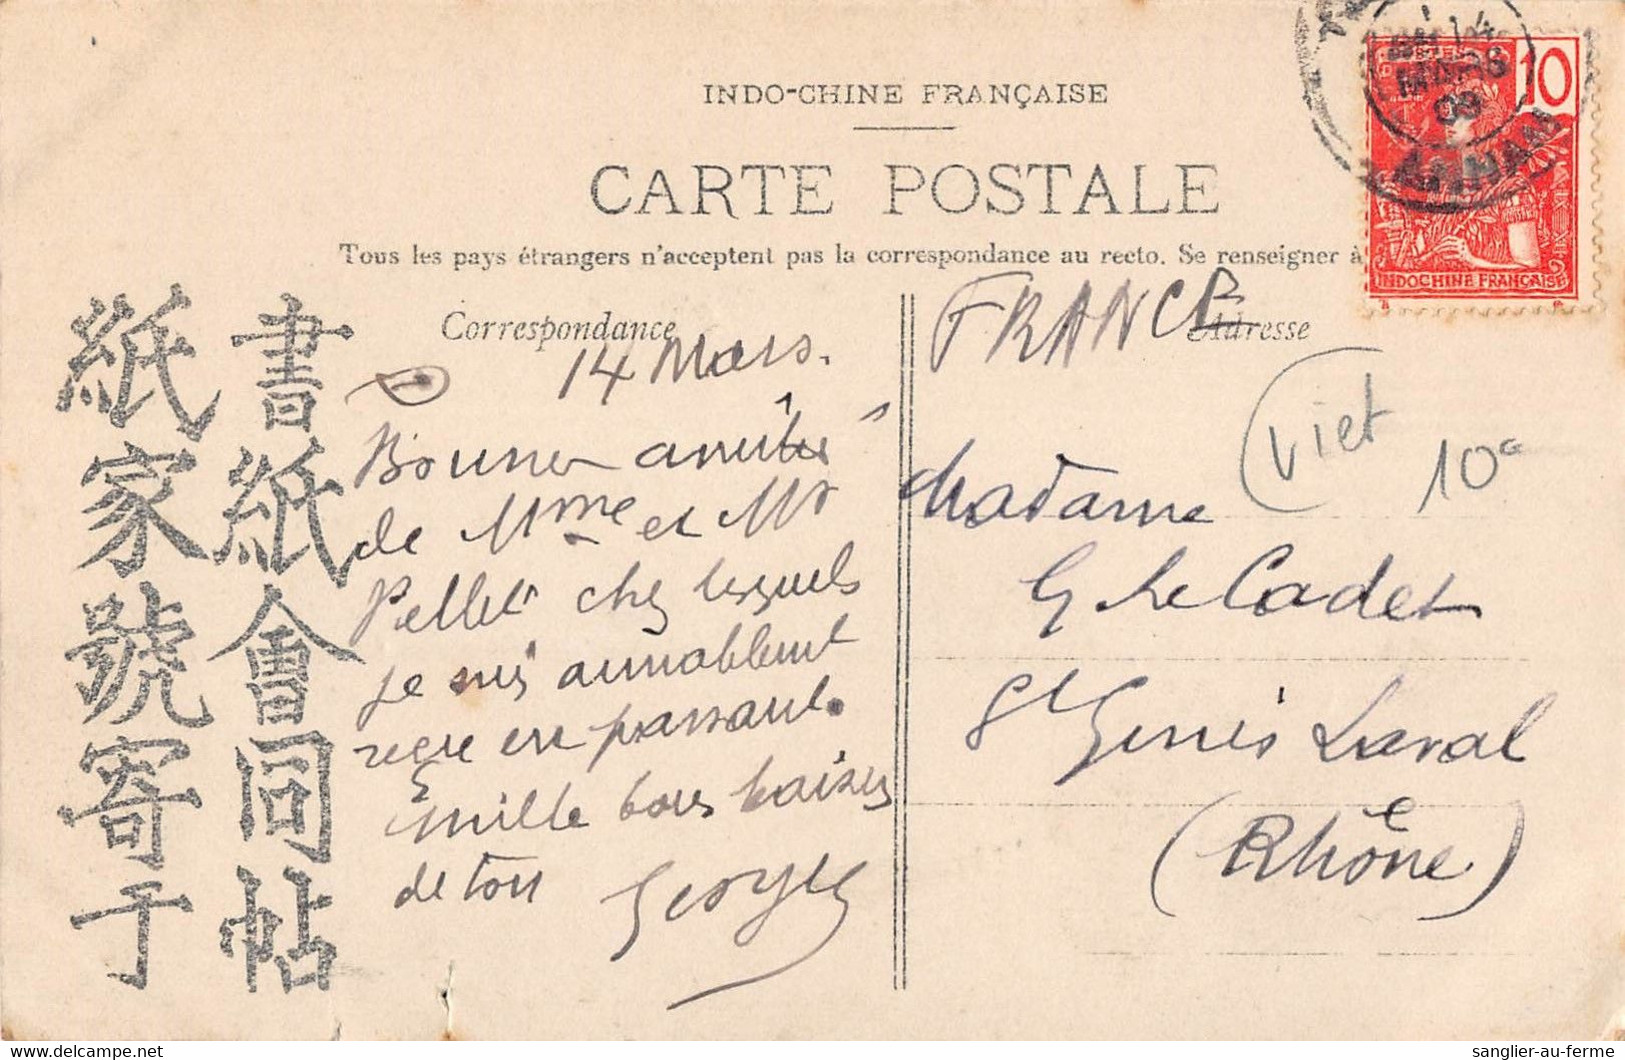 INDO-CHINE FRANÇAISE
CARTE POSTALE
Tous les pays étrangers n'acceptent pas la correspondance au recto. Se renseigner à
Correspondance
Adresse
書紙會同帖
紙家號寄于
14 Mars.
Bonnes amitiés
de Mme et Mr
Pellet chez lesquels
je suis aimablement
reçu en passant.
Mille bons baisers
de ton Georges
FRANCE
Madame
G Le Cadet
St Genis Laval
(Rhône)
(Viet
10
10
MARS
09
ANNAM
INDOCHINE FRANÇAISE
sanglier-au-ferme